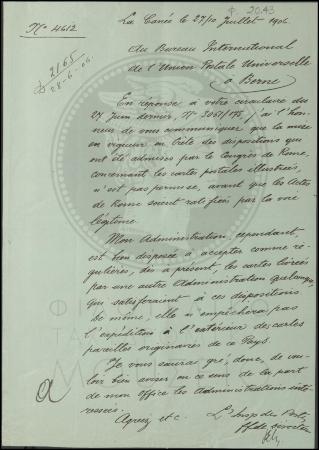 No 4612
φ 20.43
La Canée le 27/10 Juillet 1906
2165
28-6-06
Au Bureau International
de l'Union Postale Universelle
à Berne
En réponse à votre circulaire du
27 Juin dernier, No 3051/175, j'ai l'hon-
neur de vous communiquer que la mise
en vigueur en Crète des dispositions qui
ont été admises par le Congrès de Rome,
concernant les cartes postales illustrées,
n'est pas permise, avant que les Actes
de Rome soient ratifiés par la voie
légitime.
Mon Administration, cependant,
est bien disposée à accepter comme ré-
gulières, dès à présent, les cartes livrées
par une autre Administration quelconque,
qui satisferaient à ces dispositions
de même, elle n'empêchera pas
l'expédition à l'extérieur des cartes
pareilles originaires de ce Pays.
Je vous saurai gré, donc, de vou-
loir bien agir en ce sens de la part
de mon office les Administrations inté-
ressées.
Agréez etc.
L'Insp des Postes